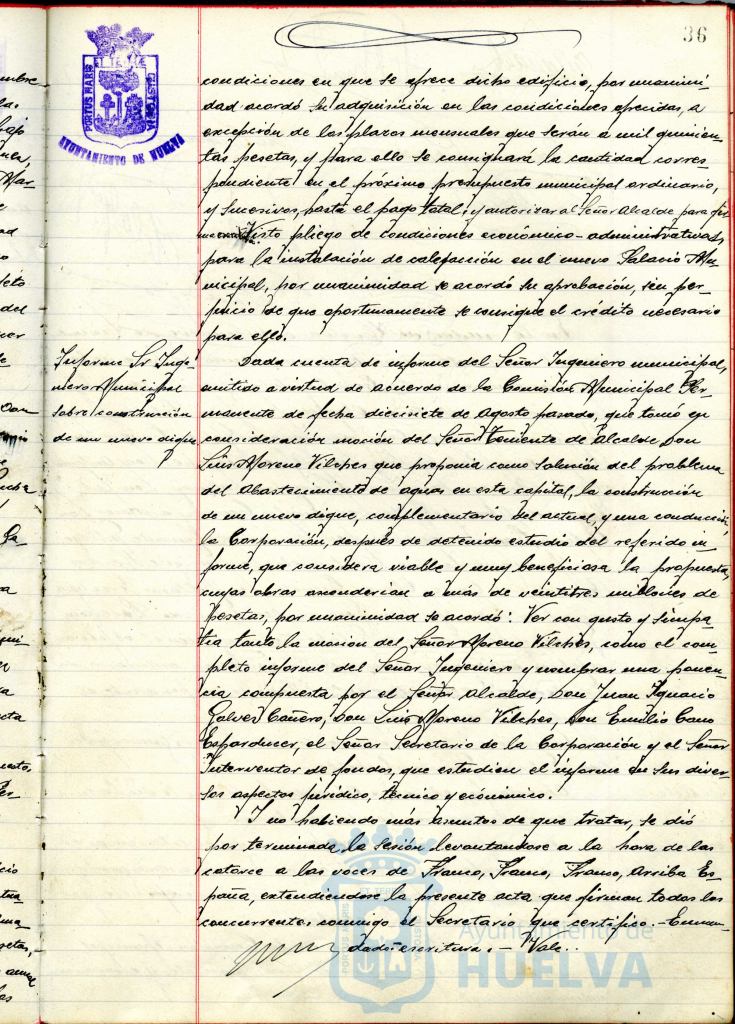 36
PORTUS MARIS
ET TERRE
CUSTODIA
AYUNTAMIENTO DE HUELVA
condiciones en que se ofrece dicho edificio, por unanimi-
dad acordó su adquisición en las condiciones ofrecidas, a
excepción de los plazos mensuales que serán a mil quinien-
tas pesetas, y para ello se consignará la cantidad corres-
pondiente en el próximo presupuesto municipal ordinario,
y sucesivos hasta el pago total, y autorizar al Señor Alcalde para
Visto pliego de condiciones económico-administrativas
para la instalación de calefacción en el nuevo Palacio Mu-
nicipal, por unanimidad se acordó su aprobación, sin per-
juicio de que oportunamente se consigne el crédito necesario
para ello.
Informe Sr Inge-
niero Municipal
sobre construcción
de un nuevo dique
Dada cuenta de informe del Señor Ingeniero municipal,
emitido a virtud de acuerdo de la Comisión Municipal Per-
manente de fecha diecisiete de Agosto pasado, que tomó en
consideración moción del Señor Teniente de Alcalde Don
Luis Moreno Vilches que proponia como solución del problema
del Abastecimiento de aguas en esta capital, la construcción
de un nuevo dique, complementario del actual, y una conducción,
la Corporación, después de detenido estudio del referido in-
forme, que considera viable y muy beneficiosa la propuesta,
cuyas obras ascenderian a más de veintitres millones de
pesetas, por unanimidad se acordó: Ver con gusto y simpa-
tia tanto la mosion del Señor Moreno Vilches, como el com-
pleto informe del Señor Ingeniero y nombrar una ponen-
cia compuesta por el Señor Alcalde, Don Juan Ignacio
Galvez Cañero, Don Luis Moreno Vilches, Don Emilio Cano
el Señor Secretario de la Corporación y el Señor
Interventor de fondos, que estudien el informe en sus diver-
sos aspectos juridico, técnico y económico.
Y no habiendo más asuntos de que tratar, se dió
por terminada la sesión levantandose a la hora de las
catorce a las voces de Franco, Franco, Franco, Arriba Es-
paña, extendiendose la presente acta que firman todos los
concurrentes conmigo el Secretario que certifico.- Enmen-
dado=escritura.- Vale.-
Ayuntamiento de
HUELVA